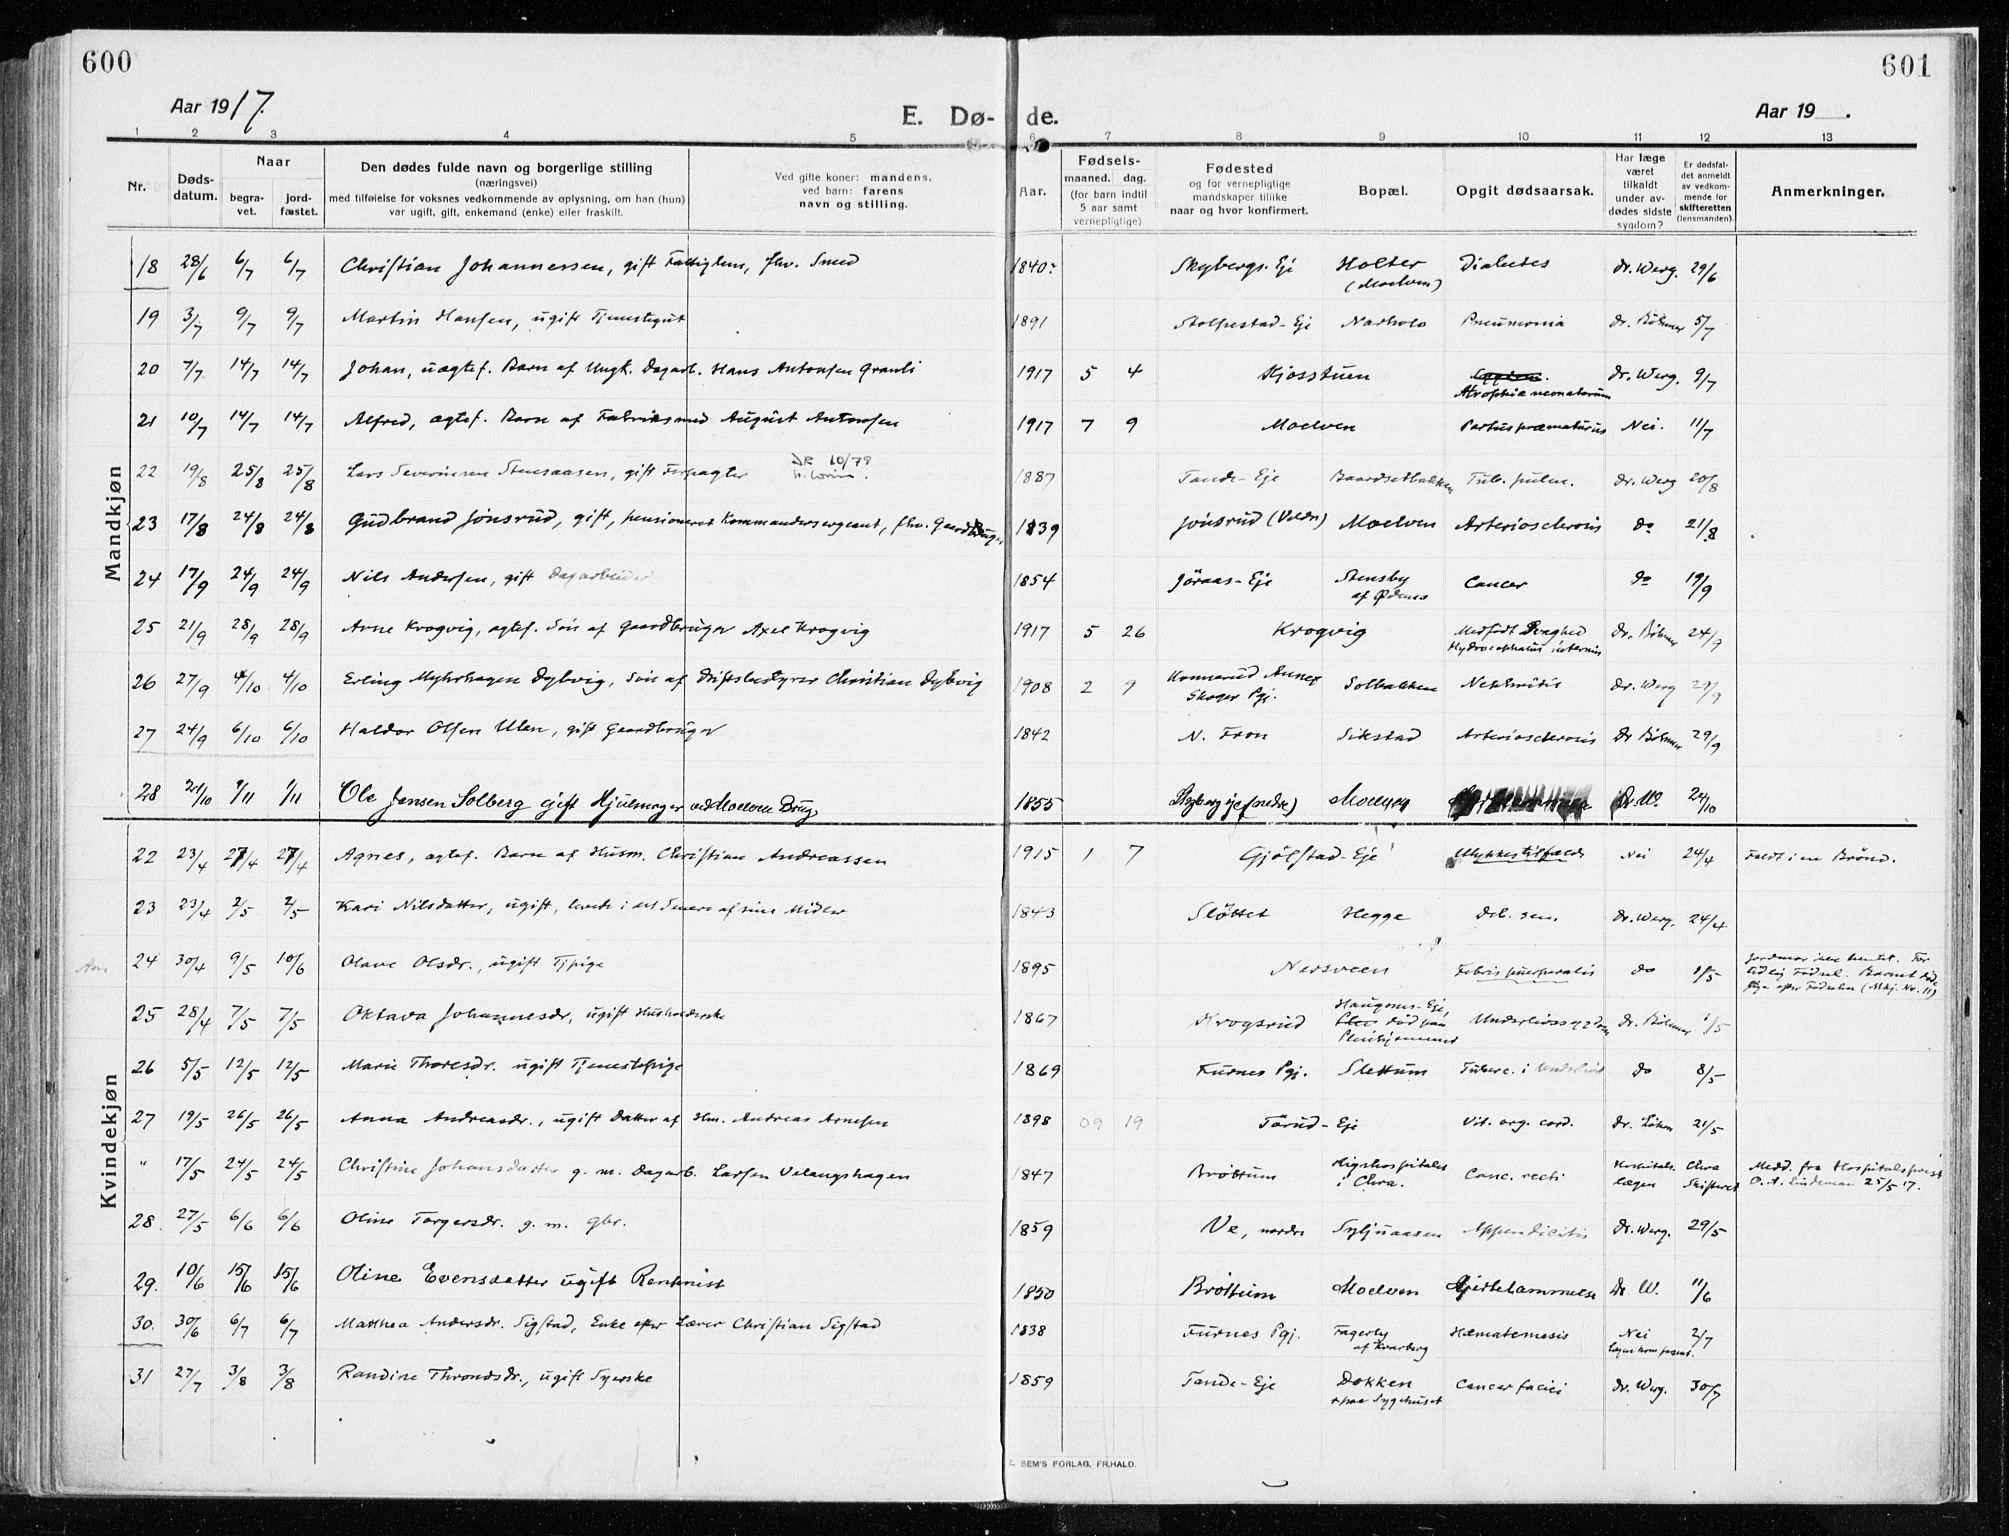 600
601
Aar 1917.
E. Dø-
de.
Aar 19 .
1 2 3 4 5 6 7 8 9 10 11 12 13
Nr.
Døds-
datum.
Naar
begra-
vet.
jord-
fæstet.
Den dødes fulde navn og borgerlige stilling
(næringsvei)
med tilføielse for voksnes vedkommende av oplysning, om han (hun)
var ugift, gift, enkemand (enke) eller fraskilt.
Ved gifte koner: mandens,
ved barn: farens
navn og stilling.
Aar.
Fødsels-
maaned. dag.
(for barn indtil
5 aar samt
vernepligtige)
Fødested
og for vernepligtige
mandskaper tillike
naar og hvor konfirmert.
Bopæl.
Opgit dødsaarsak.
Har læge
været
tilkaldt
under av-
dødes sidste
sygdom?
Er dødsfal-
det anmeldt
av vedkom-
mende for
skifteretten
(lensmanden).
Anmerkninger.
Mandkjøn
18 28/6 6/7 6/7 Christian Johannessen, gift Fattiglem, fhv. Smed 1840 Skybergs. Eje Holter (Moelven) Diabetes Dr. Werg. 29/6
19 3/7 9/7 9/7 Martin Hansen, ugift Tjenestegut 1891 Stolpestad-Eje Narholo Pneumonia Dr. Böhmer 5/7
20 7/7 14/7 14/7 Johan, uægtef. Barn af Ungk. Dagarb. Hans Antonsen Granli 1917 5 4 Kjosstuen Atrophia neonatorum Dr. Werg. 9/7
21 10/7 14/7 14/7 Alfred, ægtef. Barn af Fabriksmed August Antonsen 1917 7 9 Moelven Partus præmaturus Nei. 11/7
22 19/8 25/8 25/8 Lars Severinsen Stensaasen, gift Forpagter DR 10/79 1887 Tande-Eje Baardsetbakken Tub. pulm. Dr. Werg 20/8
23 17/8 24/8 24/8 Gudbrand Jönsrud, gift, pensioneret Kommandersergeant, fhv. Gaardbruger 1839 Jönsrud (Veldr) Moelven Arteriosclerosis do 21/8
24 17/9 24/9 24/9 Nils Andersen, gift Dagarbeider 1854 Jöraas-Eje Stensby af Ødemo Cancer do 19/9
25 21/9 28/9 28/9 Arne Krogvig, ægtef. Sön af Gaardbruger Axel Krogvig 1917 5 26 Krogvig Medfödt Svaghed Hydrocephalus internus Dr. Böhmer 24/9
26 27/9 4/10 4/10 Erling Myhrhagen Dybvig, Sön af Driftsbestyrer Christian Dybvig 1908 2 9 Konnerud Annex Skoger Pgj. Solbakken Nephritis Dr. Werg 29/9
27 24/9 6/10 6/10 Haldor Olsen Ulen, gift Gaardbruger 1842 N. Fron Sikstad Arteriosclerosis Dr Böhmer 29/9
28 21/10 1/11 1/11 Ole Jensen Solberg gift Hjulmager ved Moelven Brug 1855 Skyberg eje (nedre) Moelven Dr. W. 24/10
Kvindekjøn
22 23/4 27/4 27/4 Agnes, ægtef. Barn af Husm. Christian Andreassen 1915 1 7 Gjölstad-Eje Ulykkestilfælde Nei 24/4 Faldt i en Brönd.
23 23/4 2/5 2/5 Kari Nilsdatter, ugift, levede i det Senere af sine Midler 1843 Slöttet Hegge Deb. sen. Dr. Werg. 24/4
24 30/4 9/5 10/6 Olave Olsdr., ugift Tjpige 1895 Nersveen Febris puerperalis do 1/5 Jordmor ikke hentet. For tidlig Födsel. Barnet död efter Födselen (Mkj. Nr. 11)
25 28/4 7/5 7/5 Oktava Johannesdr, ugift Husholderske 1867 Krogsrud Haugens-Eje, död paa Pleiehjemmet Underlivssygdom Dr. Böhmer 1/5
26 5/5 12/5 12/5 Marie Thoresdr. ugift Tjenestepige 1869 Furnes Pgj. Slettum Tuberc. i Underlivet do 8/5
27 19/5 26/5 26/5 Anna Andreasdr., ugift Datter af Hm. Andreas Arnesen 1898 09 19 Törud-Eje Vit. org. cord. Dr. Löken 21/5
" 17/5 24/5 24/5 Christine Johansdatter g. m. Dagarb. Larsen Velangshagen 1847 Bröttum Rigshospitalet i Chra. Canc. recti Hospitals. lægen Chra Skifteret Medd. fra Hospitalsprest O. A. Lindeman 25/5 17.
28. 27/5 6/6 6/6 Oline Torgersdr. g. m. gbr. 1859 Ve, nordre Syljuaasen Appendicitis Dr. Werg. 29/5
29. 10/6 15/6 15/6 Oline Evensdatter ugift Rentenist 1850 Bröttum Moelven Hjertelammelse Dr. W. 11/6
30. 30/6 6/7 6/7 Matthea Andersdr. Sigstad, Enke efter Lærer Christian Sigstad 1838 Furnes Pgj. Fagerby af Kvarberg Hæmatemesis Nei Lægen kom for sent. 2/7
31 27/7 3/8 3/8 Randine Throndsdr., ugift Syerske 1859 Tande-Eje Dokken + paa Sygehuset Cancer faciei Dr. Werg. 30/7
E. SEM'S FORLAG, FR.HALD.